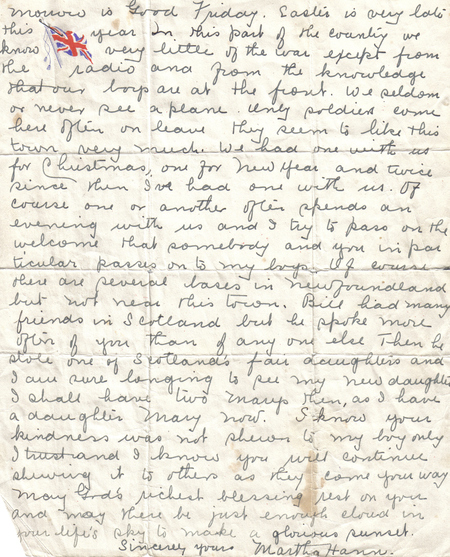 morrow is Good Friday. Easter is very late
this year. In this part of the country we
know very little of the war except from
the radio and from the knowledge
that our boys are at the front. We seldom
or never see a plane. Only soldiers come
here often on leave they seem to like this
town very much. We had one with us
for Christmas, one for New Year and twice
since then I've had one with us. Of
course one or another often spends an
evening with us and I try to pass on the
welcome that somebody and you in par
ticular passes on to my boys. Of course
there are several bases in Newfoundland
but not near this town. Bill had many
friends in Scotland but he spoke more
often of you than of any one else Then he
stole one of Scotland's fair daughters and
I am sure longing to see my new daughter
I shall have two Marys then, as I have
a daughter Mary now. I know your
kindness was not shewn to my boy only
I trust and I know you will continue
shewing it to others as they come your way
May God's richest blessing rest on you
and may there be just enough cloud in
your life's sky to make a glorious sunset.
Sincerely yours Martha Hann.